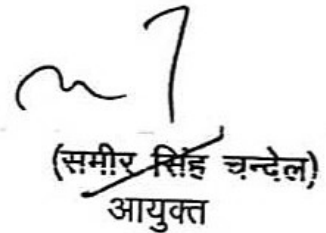 (समीर सिंह चन्देल)
आयुक्त